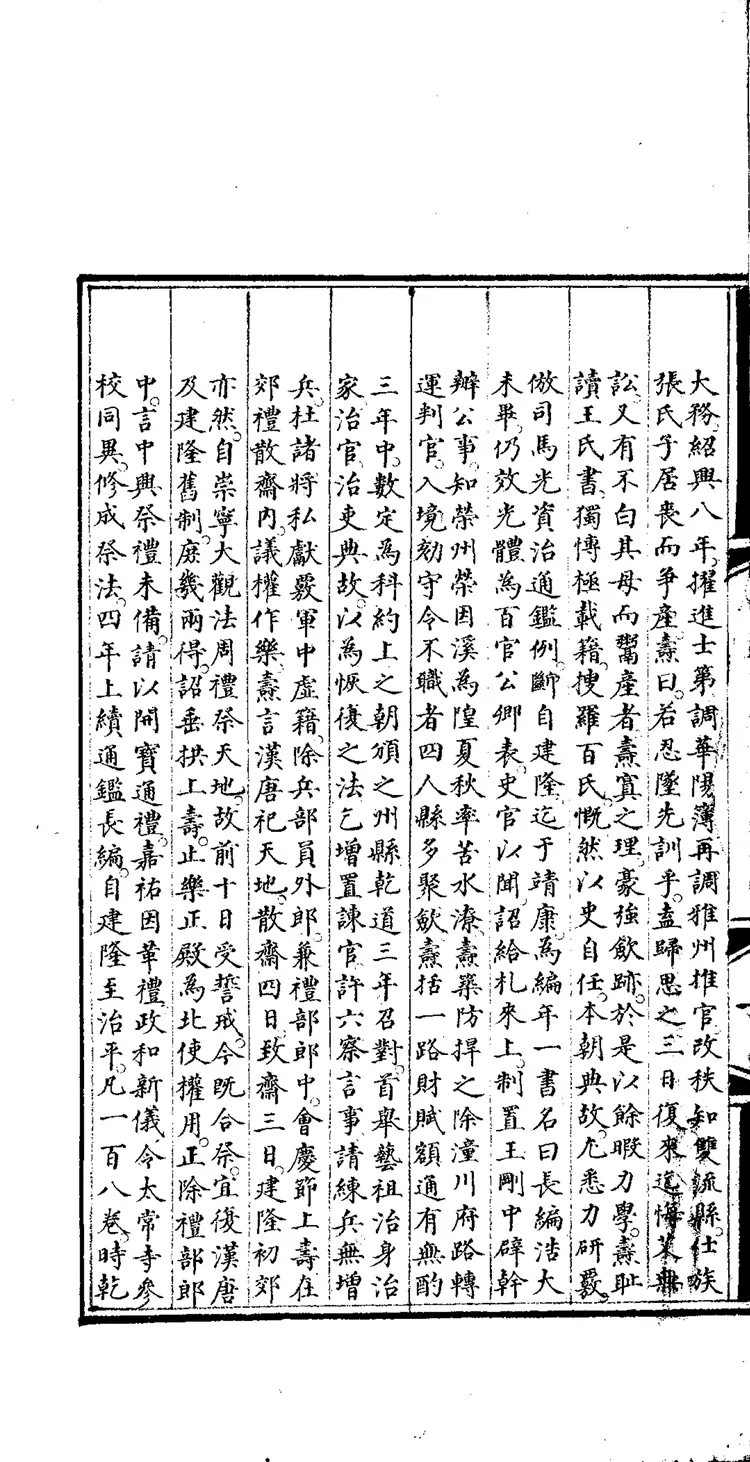 大務紹興八年擢進士第調華陽簿再調雅州推官改秩知雙流縣仕族
張氏子居喪而爭產燾曰若忍墜先訓乎盍歸思之三日復來迄悔艾無
訟又有不白其母而鬻產者燾寘之理豪強斂跡於是以餘暇力學燾恥
讀王氏書獨博極載籍搜羅百氏慨然以史自任本朝典故尤悉力研覈
倣司馬光資治通鑑例斷自建隆迄于靖康為編年一書名曰長編浩大
未畢仍效光體為百官公卿表史官以聞詔給札來上制置王剛中辟幹
辦公事知榮州榮因溪為隍夏秋率苦水潦燾築防捍之除潼川府路轉
運判官入境劾守令不職者四人縣多聚斂燾括一路財賦額通有無酌
三年中數定為科約上之朝頒之州縣乾道三年召對首舉藝祖治身治
家治官治吏典故以為恢復之法乞增置諫官許六察言事請練兵無增
兵杜諸將私獻覈軍中虛籍除兵部員外郎兼禮部郎中會慶節上壽在
郊禮散齋內議權作樂燾言漢唐祀天地散齋四日致齋三日建隆初郊
亦然自崇寧大觀法周禮祭天地故前十日受誓戒今既合祭宜復漢唐
及建隆舊制庶幾兩得詔垂拱上壽止樂正殿為北使權用正除禮部郎
中言中興祭禮未備請以開寶通禮嘉祐因革禮政和新儀令太常寺參
校同異修成祭法四年上續通鑑長編自建隆至治平凡一百八卷時乾